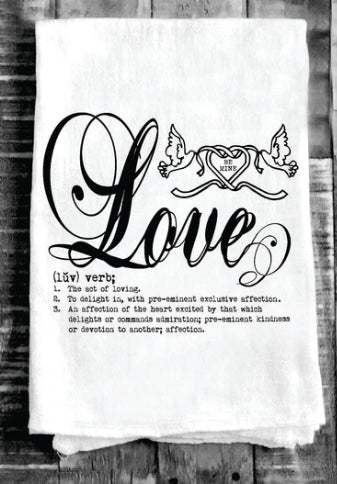 BE
MINE
Love
(lŭv) verb;
1. The act of loving.
2. To delight in, with pre-eminent exclusive affection.
3. An affection of the heart excited by that which
delights or commands admiration; pre-eminent kindness
or devotion to another; affection.